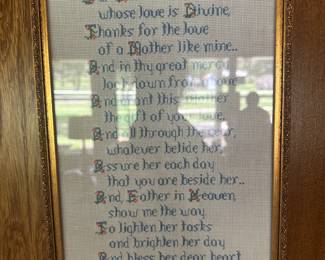 whose love is Divine,
Thanks for the love
of a Mother like mine..
And in thy great mercy
look down from above
And grant this Mother
the gift of your love,
And all through the year,
whatever betide her,
Assure her each day
that you are beside her..
And, Father in Heaven
show me the way
To lighten her tasks
and brighten her day
And bless her dear heart